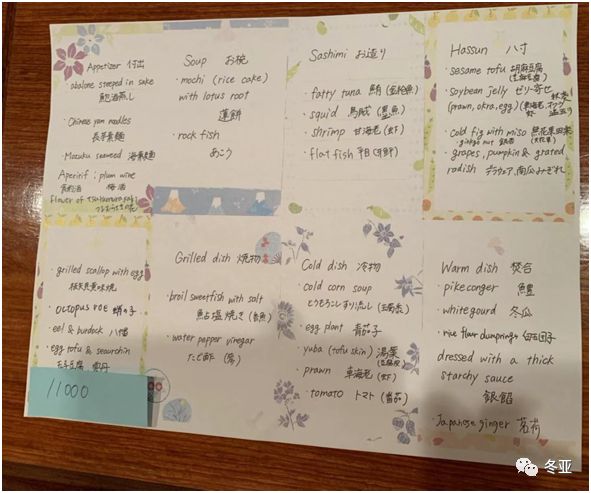 Appetizer 付出
・abalone steeped in sake
鮑酒蒸し
・Chinese yam noodles
長芋素麺
・Mozuku seaweed
Aperitif : plum wine
食前酒 梅酒
flower of
Soup お椀
・mochi (rice cake)
with lotus root
蓮餅
・rock fish
あこう
Sashimi お造り
・fatty tuna 鮪 (金枪鱼)
・squid 烏賊 (墨魚)
・shrimp 甘海老 (虾)
・flat fish 平目
Hassun 八寸
・sesame tofu 胡麻豆腐
・Soybean jelly ゼリー寄せ 枝豆
(prawn, okra, egg) (車海老, オクラ
虾
・Cold fig with miso 無花果田楽
・ginkgo nut 銀杏
・grapes, pumpkin & grated
radish デラウェア、南瓜みぞれ
・grilled scallop with egg
帆立貝黄味焼
・octopus roe 蛸の子
・eel & burdock 八幡
・egg tofu & seaurchin
玉子豆腐 雲丹
11000
Grilled dish 焼物
・broil sweetfish with salt
鮎塩焼き (香魚)
・water pepper vinegar
たで酢
Cold dish 冷物
・cold corn soup
とうもろこしすり流し
・egg plant 青茄子
・yuba (tofu skin) 湯葉
・prawn 車海老 (虾)
・tomato トマト (番茄)
Warm dish 焚合
・pike conger 鱧
・white gourd 冬瓜
・rice flour dumprings 白玉団子
dressed with a thick
starchy sauce
銀餡
・Japanese ginger 茗荷
冬亚